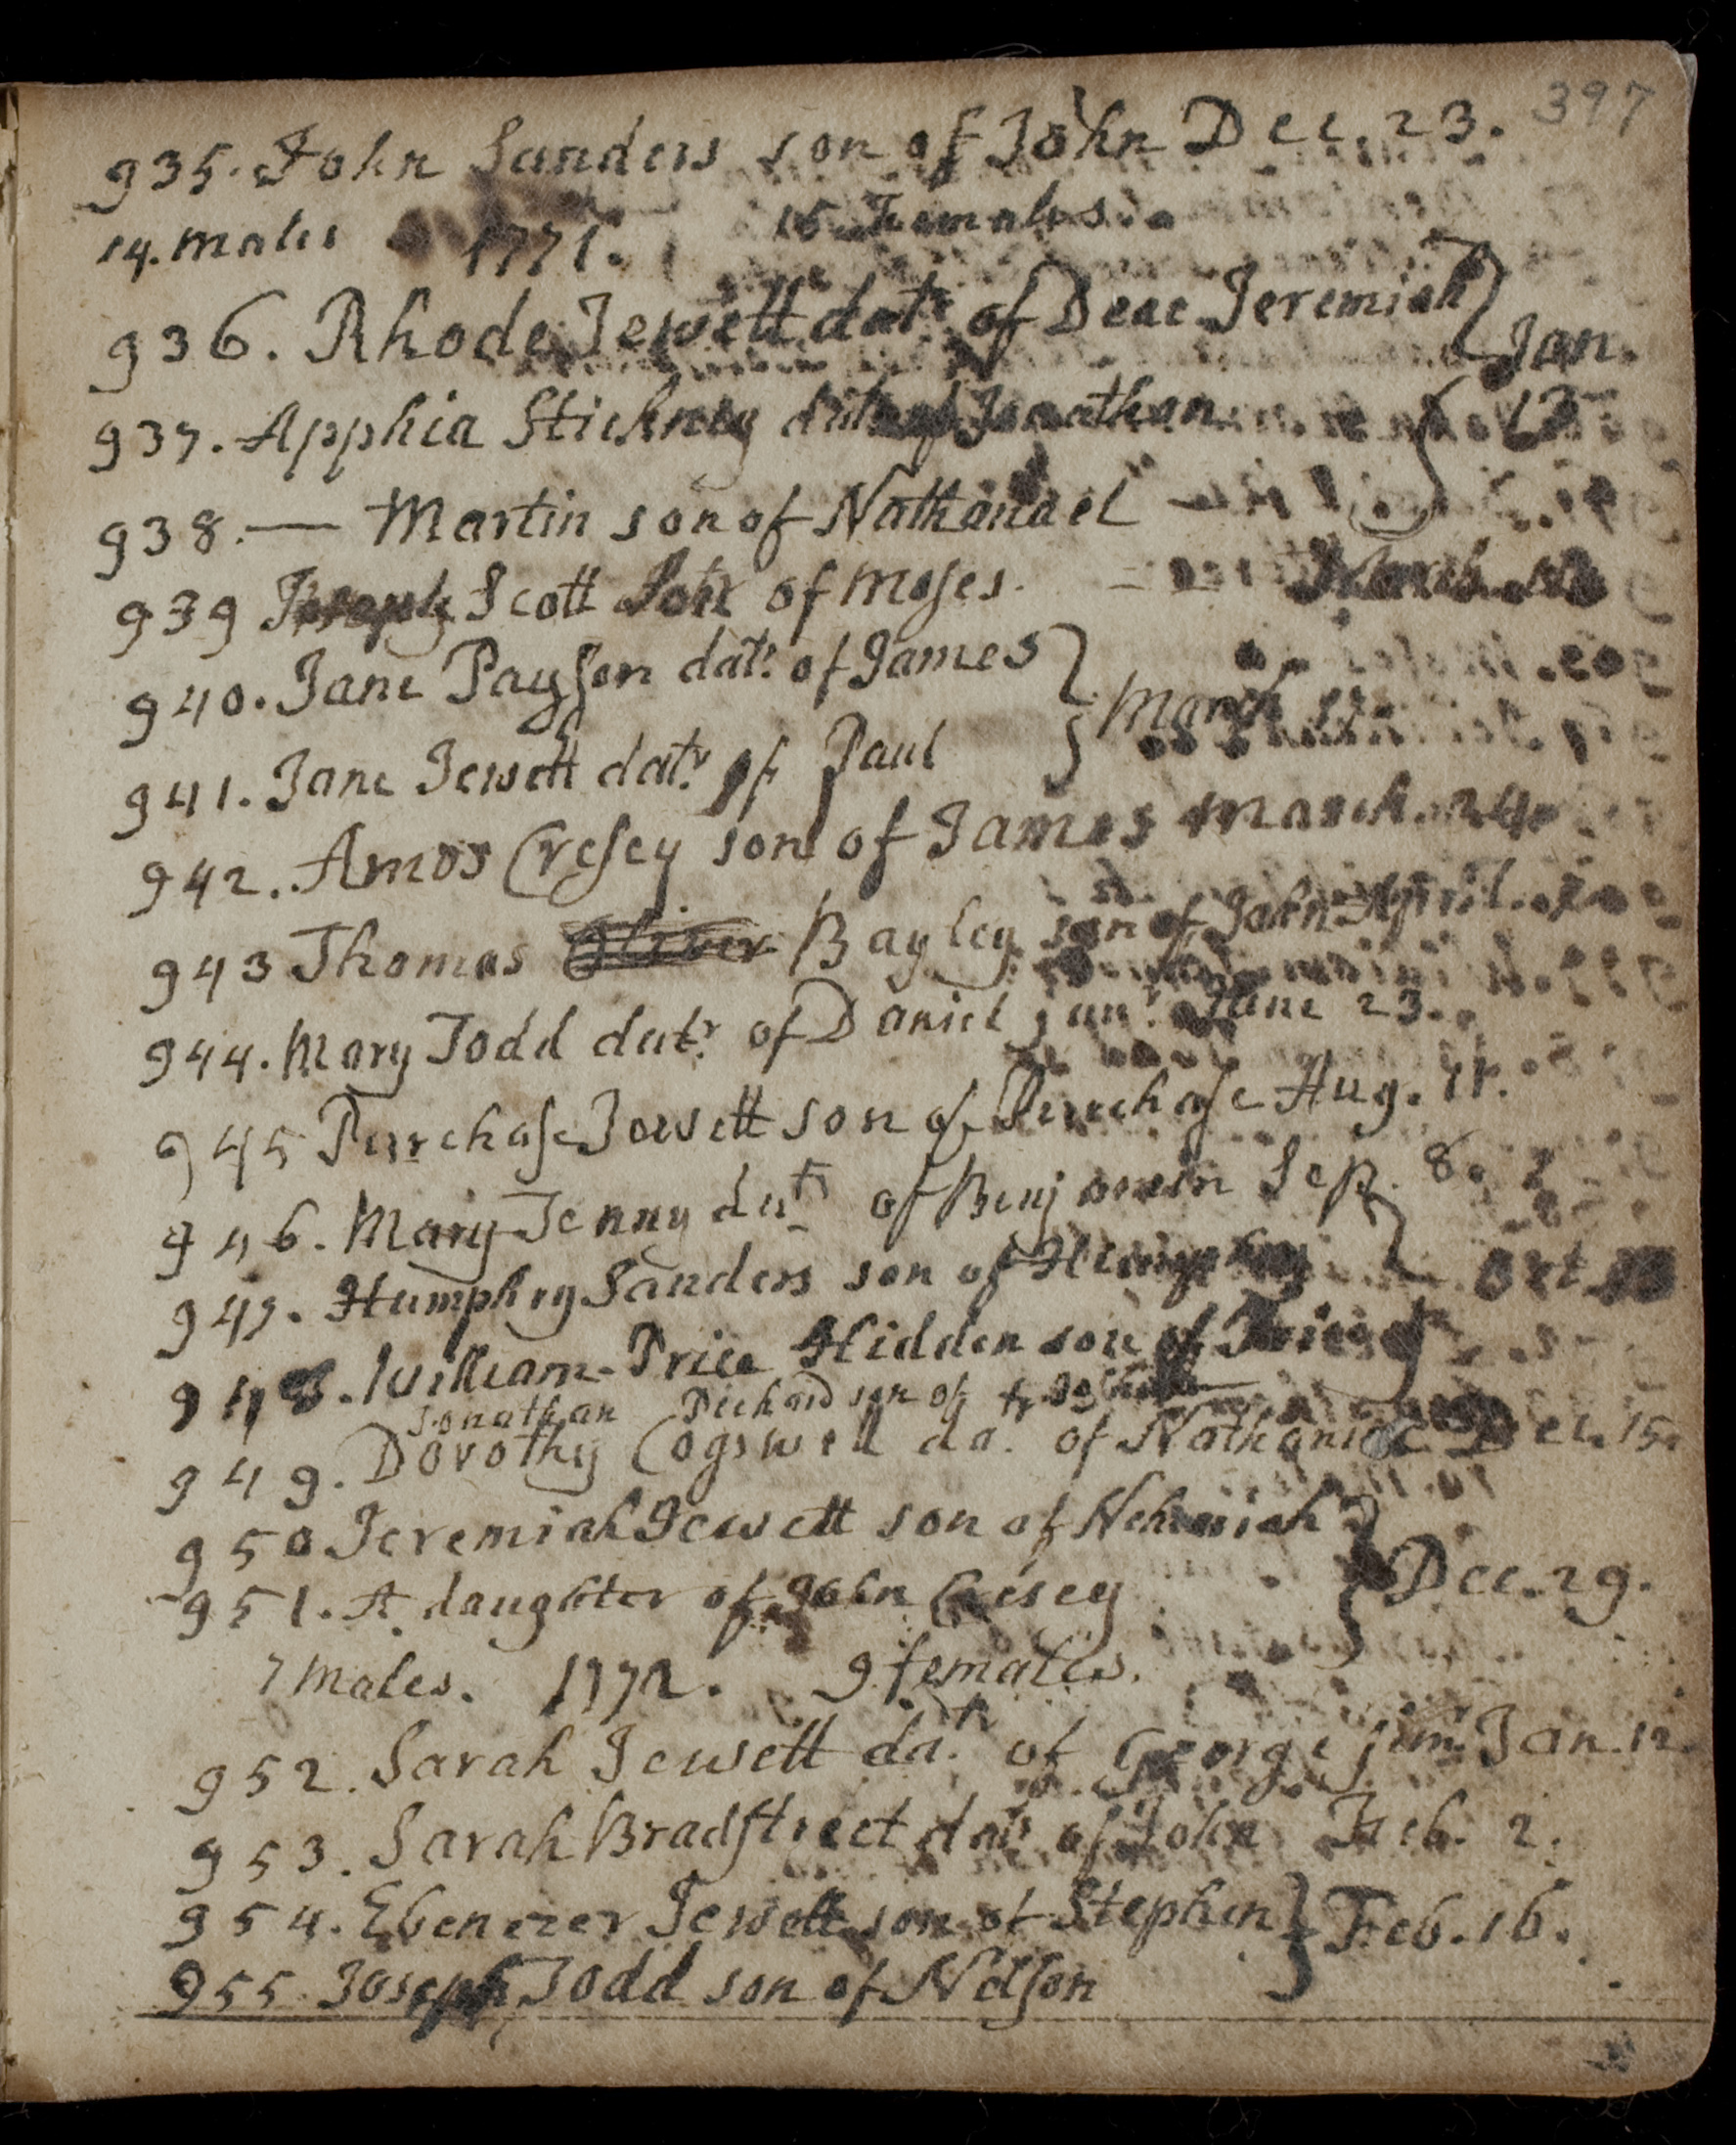 397
935. John Sanders son of John Dec. 23.
14. males 1771. 15 Females.
936. Rhode Jewett datr. of Deac Jeremiah } Jan.
937. Apphia Stickney datr of Jonathan 13
938. — Martin son of Nathanael
939 Joseph Scott son of Moses. March
940. Jane Payson datr. of James }
941. Jane Jewett datr. of Paul } March 17
942. Amos Cresey son of James March. 24
943 Thomas Oliver Bayley son of John April.
944. Mary Todd datr. of Daniel junr. June 23.
945 Purchase Jewett son of Purchase Aug. 11.
946. Mary Tenny datr of Benjamin Sep. 8.
947. Humphry Sanders son of Humphry } Oct
948. William-Price Hidden son of Price
Jonathan Pickard son of
949. Dorothy Cogswell da. of Nathaniel Dec. 15.
950 Jeremiah Jewett son of Nehemiah }
951. A daughter of John Cresey } Dec. 29.
7 males. 1772. 9 females.
952. Sarah Jewett datr. of George junr. Jan. 12
953. Sarah Bradstreet datr of John Feb. 2.
954. Ebenezer Jewett son of Stephen } Feb. 16.
955. Joseph Todd son of Nelson